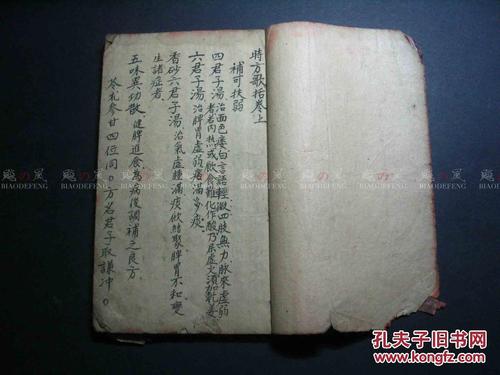 時方歌括卷上
補可扶弱
四君子湯 治面色痿白言語輕微四肢無力脉來虛弱
者若内熱或飲食難化作酸乃属虛火須加乾姜
六君子湯 治脾胃虛弱痞滿多痰
香砂六君子湯 治氣虛腫滿痰飲結聚脾胃不和變
生諸症者
五味異功散 健脾進食為病後調補之良方
苓朮參甘四位同。方名君子取謙冲。
BIAODEFENG
BIAODEFENG
BIAODEFENG
BIAODEFENG
孔夫子旧书网
www.kongfz.com